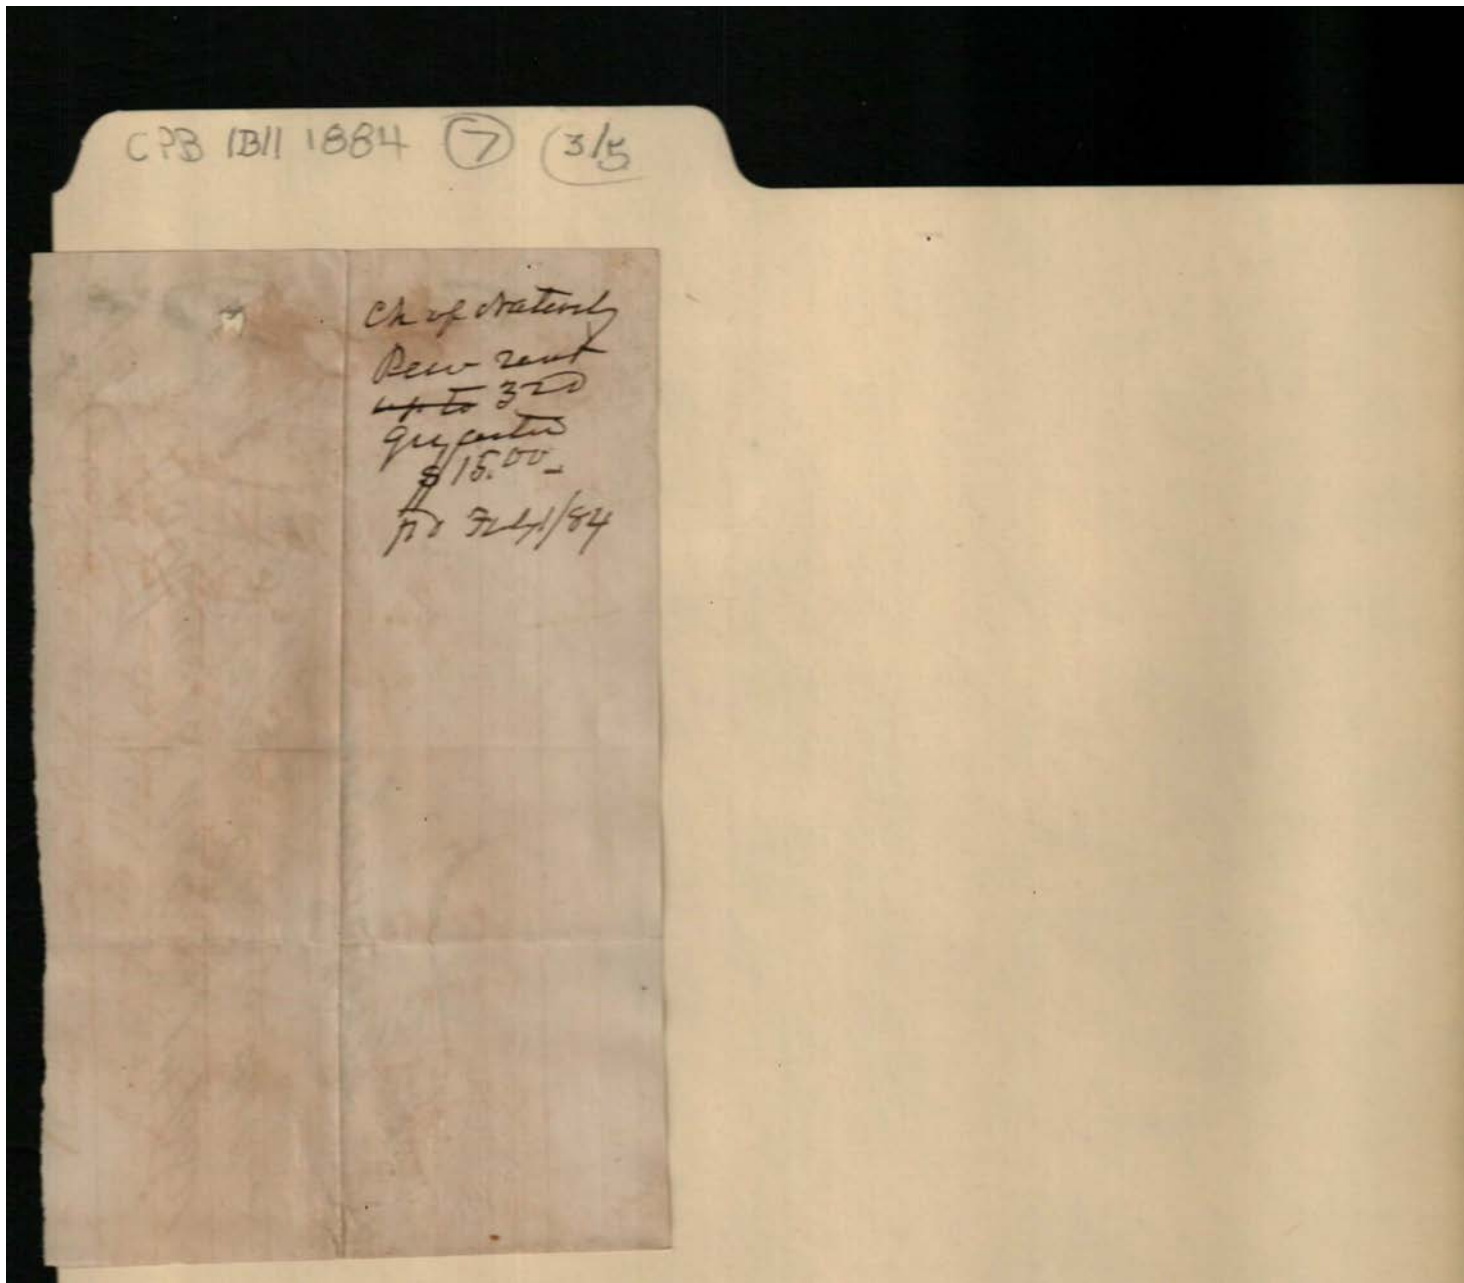 CPB 1B11 1884 7 3/5
Ch of Nativity
Pew rent
up to 3rd
quarter
$15.00
pd Feby 1/84